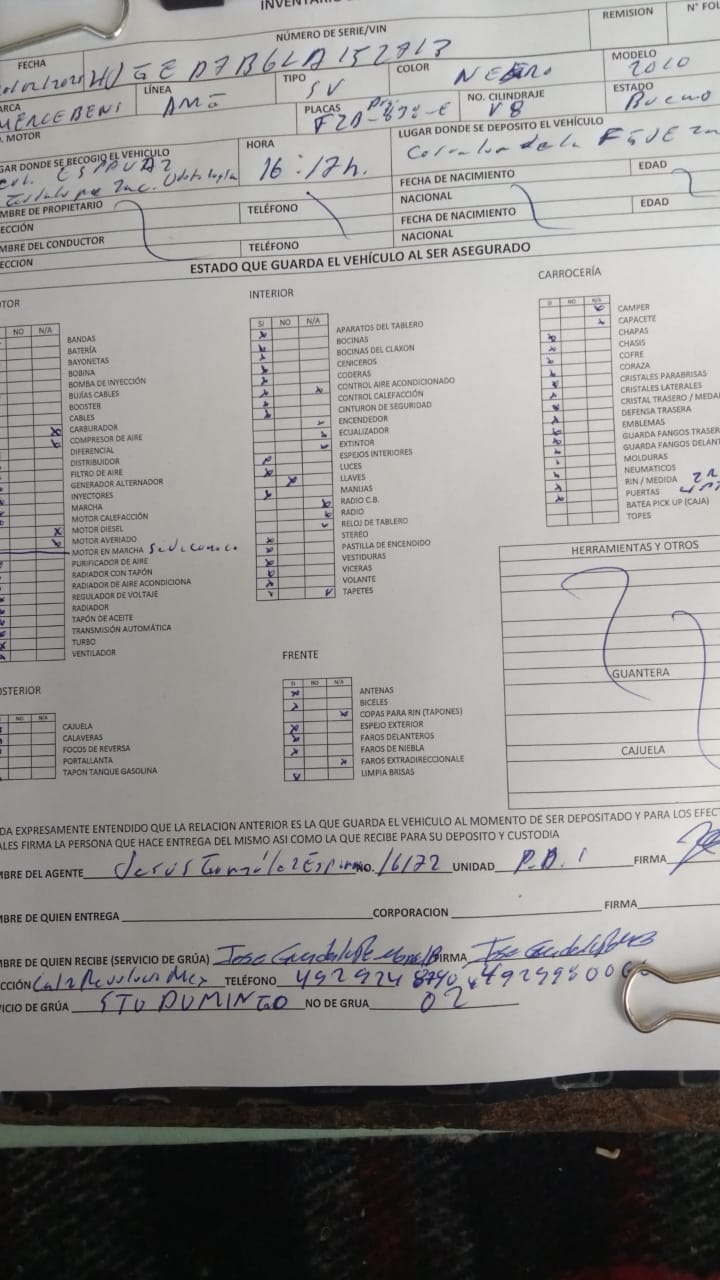 INVENTARIO
REMISION
N° FOL
NÚMERO DE SERIE/VIN
FECHA
LÍNEA
TIPO
COLOR
MODELO
SV
NEGRO
2010
ARCA
PLACAS
NO. CILINDRAJE
ESTADO
V8
Bueno
MOTOR
GAR DONDE SE RECOGIO EL VEHICULO
HORA
LUGAR DONDE SE DEPOSITO EL VEHÍCULO
16:17h.
FECHA DE NACIMIENTO
EDAD
MBRE DE PROPIETARIO
TELÉFONO
NACIONAL
ECCIÓN
FECHA DE NACIMIENTO
EDAD
MBRE DEL CONDUCTOR
TELÉFONO
NACIONAL
ECCION
ESTADO QUE GUARDA EL VEHÍCULO AL SER ASEGURADO
TOR
NO N/A
BANDAS
BATERÍA
BAYONETAS
BOBINA
BOMBA DE INYECCIÓN
BUJÍAS CABLES
BOOSTER
CABLES
CARBURADOR
COMPRESOR DE AIRE
DIFERENCIAL
DISTRIBUIDOR
FILTRO DE AIRE
GENERADOR ALTERNADOR
INYECTORES
MARCHA
MOTOR CALEFACCIÓN
MOTOR DIESEL
MOTOR AVERIADO
MOTOR EN MARCHA
PURIFICADOR DE AIRE
RADIADOR CON TAPÓN
RADIADOR DE AIRE ACONDICIONA
REGULADOR DE VOLTAJE
RADIADOR
TAPÓN DE ACEITE
TRANSMISIÓN AUTOMÁTICA
TURBO
VENTILADOR
INTERIOR
SI NO N/A
APARATOS DEL TABLERO
BOCINAS
BOCINAS DEL CLAXON
CENICEROS
CODERAS
CONTROL AIRE ACONDICIONADO
CONTROL CALEFACCIÓN
CINTURON DE SEGURIDAD
ENCENDEDOR
ECUALIZADOR
EXTINTOR
ESPEJOS INTERIORES
LUCES
LLAVES
MANIJAS
RADIO C.B.
RADIO
RELOJ DE TABLERO
STEREO
PASTILLA DE ENCENDIDO
VESTIDURAS
VICERAS
VOLANTE
TAPETES
CARROCERÍA
SI NO N/A
CAMPER
CAPACETE
CHAPAS
CHASIS
COFRE
CORAZA
CRISTALES PARABRISAS
CRISTALES LATERALES
CRISTAL TRASERO / MEDA
DEFENSA TRASERA
EMBLEMAS
GUARDA FANGOS TRASER
GUARDA FANGOS DELANT
MOLDURAS
NEUMATICOS
RIN / MEDIDA
PUERTAS
BATEA PICK UP (CAJA)
TOPES
HERRAMIENTAS Y OTROS
GUANTERA
CAJUELA
OSTERIOR
NO N/A
CAJUELA
CALAVERAS
FOCOS DE REVERSA
PORTALLANTA
TAPON TANQUE GASOLINA
FRENTE
SI NO N/A
ANTENAS
BICELES
COPAS PARA RIN (TAPONES)
ESPEJO EXTERIOR
FAROS DELANTEROS
FAROS DE NIEBLA
FAROS EXTRADIRECCIONALE
LIMPIA BRISAS
DA EXPRESAMENTE ENTENDIDO QUE LA RELACION ANTERIOR ES LA QUE GUARDA EL VEHICULO AL MOMENTO DE SER DEPOSITADO Y PARA LOS EFECT
ALES FIRMA LA PERSONA QUE HACE ENTREGA DEL MISMO ASI COMO LA QUE RECIBE PARA SU DEPOSITO Y CUSTODIA
MBRE DEL AGENTE Jesús González NO. 16172 UNIDAD P.D. 1 FIRMA
MBRE DE QUIEN ENTREGA CORPORACION FIRMA
MBRE DE QUIEN RECIBE (SERVICIO DE GRÚA) Jose Guadalupe FIRMA Jose Guadalupe
CCIÓN TELÉFONO
VICIO DE GRÚA STO DOMINGO NO DE GRUA 02